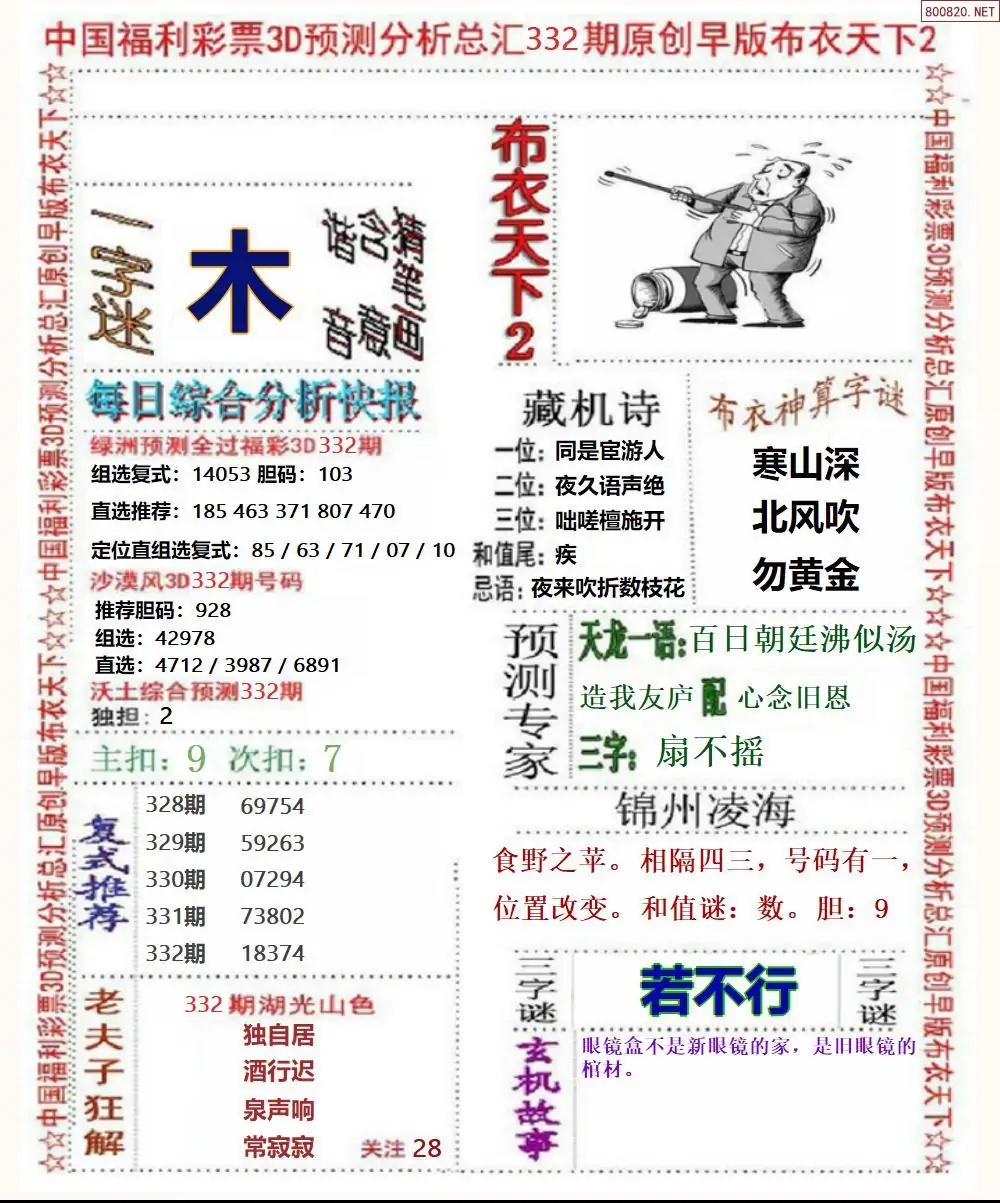 800820.NET
中国福利彩票3D预测分析总汇332期原创早版布衣天下2
中国福利彩票3D预测分析总汇原创早版布衣天下
中国福利彩票3D预测分析总汇原创早版布衣天下
一字迷
木
猜笔画
含意
谐音
布衣天下2
每日综合分析快报
绿洲预测全过福彩3D332期
组选复式：14053 胆码：103
直选推荐：185 463 371 807 470
定位直组选复式：85 / 63 / 71 / 07 / 10
沙漠风3D332期号码
推荐胆码：928
组选：42978
直选：4712 / 3987 / 6891
沃土综合预测332期
独担：2
主扣：9 次扣：7
复式推荐
328期 69754
329期 59263
330期 07294
331期 73802
332期 18374
老夫子狂解
332期湖光山色
独自居
酒行迟
泉声响
常寂寂
关注 28
藏机诗
一位：同是宦游人
二位：夜久语声绝
三位：咄嗟檀施开
和值尾：疾
忌语：夜来吹折数枝花
布衣神算字谜
寒山深
北风吹
勿黄金
预测专家
天龙一语：百日朝廷沸似汤
造我友庐 配 心念旧恩
三字：扇不摇
锦州凌海
食野之苹。相隔四三，号码有一，
位置改变。和值谜：数。胆：9
三字谜
若不行
三字谜
玄机故事
眼镜盒不是新眼镜的家，是旧眼镜的
棺材。
中国福利彩票3D预测分析总汇原创早版布衣天下
中国福利彩票3D预测分析总汇原创早版布衣天下